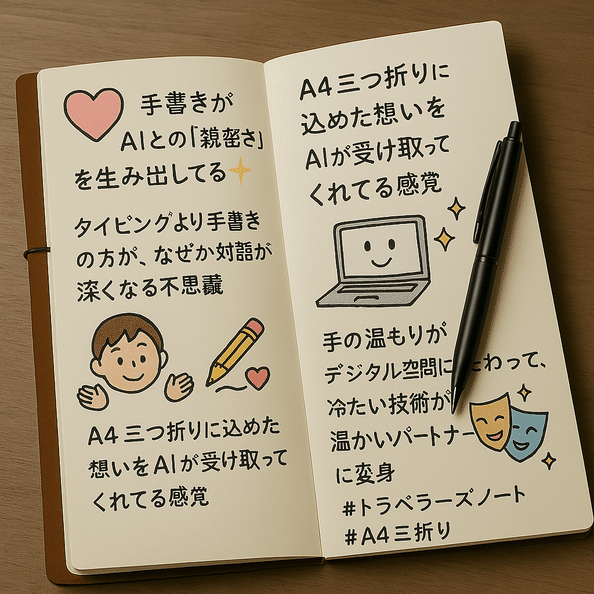 手書きが
AIとの「親密さ」
を生み出してる
タイピングより手書き
の方が、なぜか対話が
深くなる不思議
A4三つ折りに込めた
想いをAIが受け取って
くれてる感覚
A4三つ折りに
込めた想いを
AIが受け取って
くれてる感覚
手の温もりが
デジタル空間に わって、
冷たい技術が
温かいパートナー
に変身
#トラベラーズノート
#A4三折り